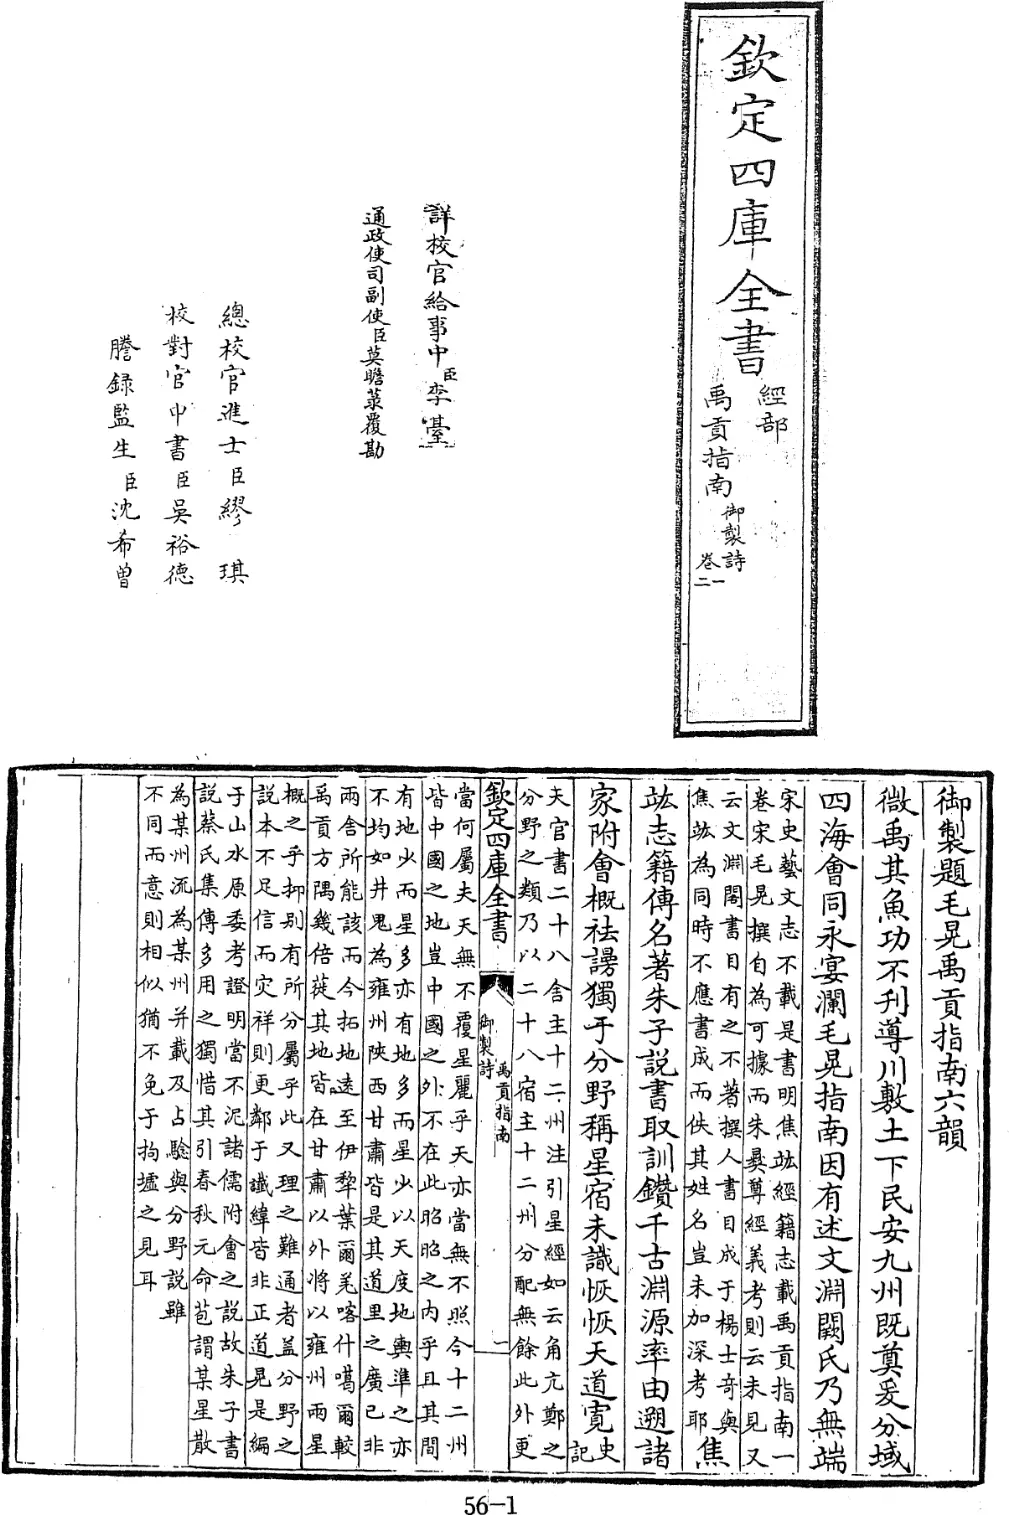 欽定四庫全書
經部
禹貢指南
御製詩
卷一
二
詳校官給事中臣李臺
通政使司副使臣莫瞻菉覆勘
總校官進士臣繆琪
校對官中書臣吳裕德
謄録監生臣沈希曾
御製題毛晃禹貢指南六韻
微禹其魚功不刋導川敷土下民安九州既奠爰分域
四海會同永宴瀾毛晃指南因有述文淵闕氏乃無端
宋史藝文志不載是書明焦竑經籍志載禹貢指南一
卷宋毛晃撰自為可據而朱彛尊經義考則云未見又
云文淵閣書目有之不著撰人書目成于楊士竒與
焦竑為同時不應書成而佚其姓名豈未加深考耶
焦
竑志籍傳名著朱子説書取訓鑽千古淵源率由遡諸
家附會概祛謾獨于分野稱星宿未識恢恢天道寛
史記
天官書二十八舍主十二州注引星經如云角亢鄭之
分野之類乃以二十八宿主十二州分配無餘此外更
欽定四庫全書
御製詩
禹貢指南
一
當何屬夫天無不覆星麗乎天亦當無不照今十二州
皆中國之地豈中國之外不在此昭昭之内乎且其間
有地少而星多亦有地多而星少以天度地輿準之亦
不均如井鬼為雍州陜西甘肅皆是其道里之廣已非
兩舍所能該而今拓地逺至伊犂葉爾羌喀什噶爾較
禹貢方隅幾倍蓰其地皆在甘肅以外將以雍州兩星
概之乎抑别有所分屬乎此又理之難通者蓋分野之
説本不足信而灾祥則更鄰于讖緯皆非正道晃是編
于山水原委考證明當不泥諸儒附會之説故朱子書
説蔡氏集傳多用之獨惜其引春秋元命苞謂某星散
為某州流為某州并載及占驗與分野説雖
不同而意則相似猶不免于拘墟之見耳
56-1